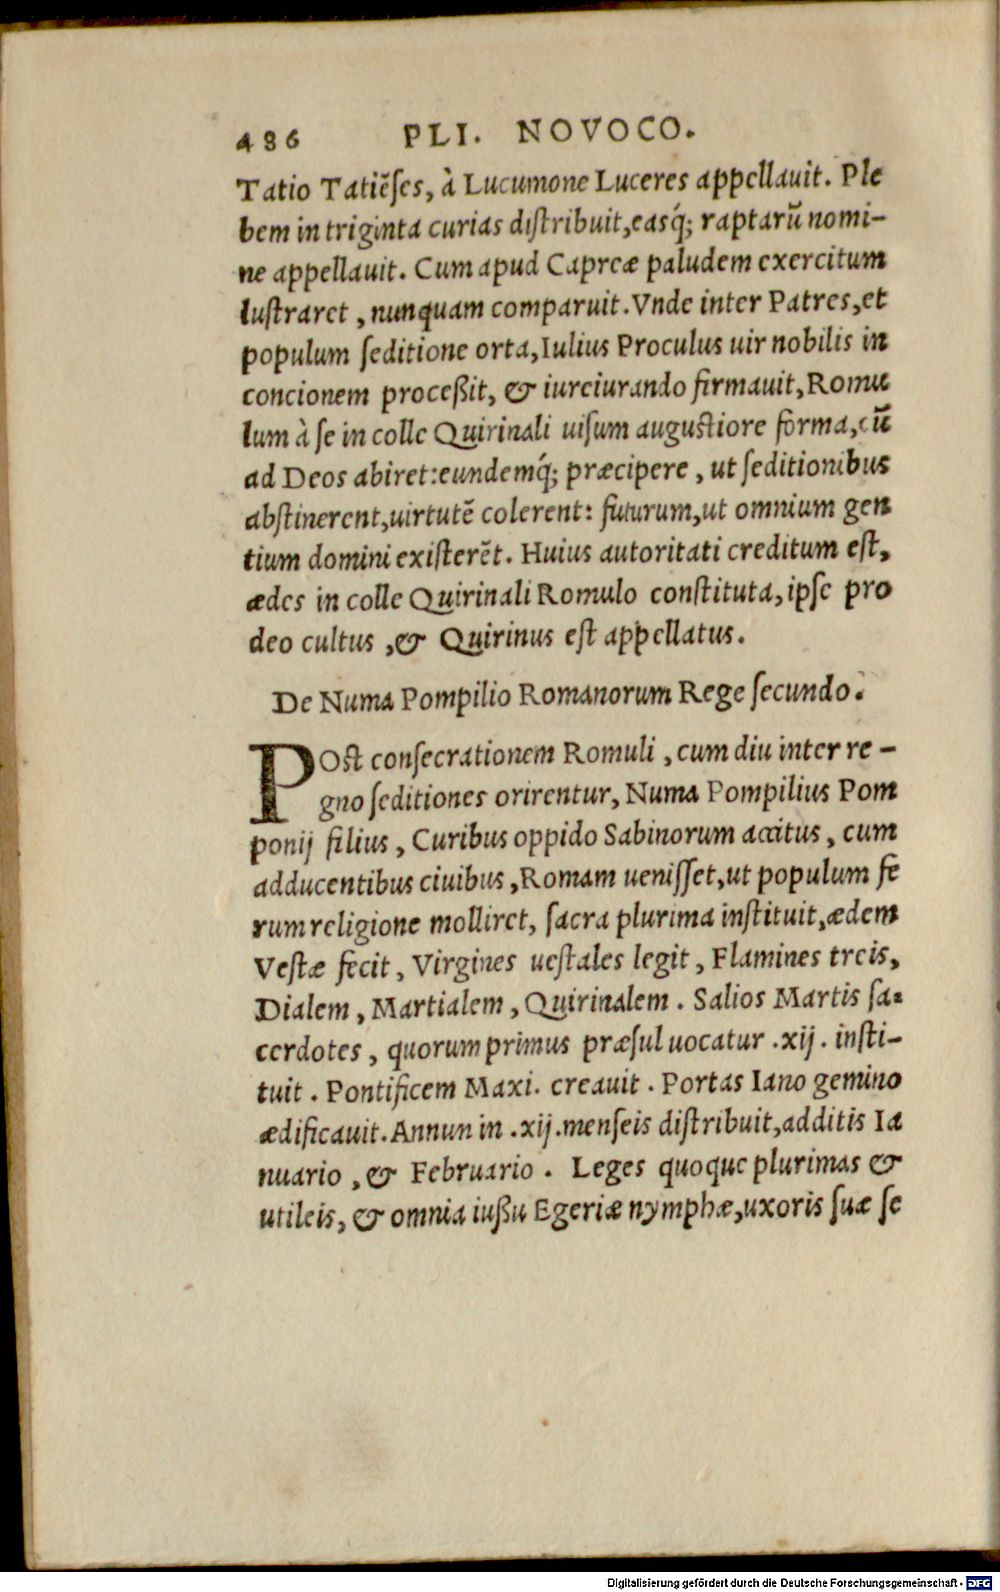 486 PLI. NOVOCO.
Tatio Tatiēſes, à Lucumone Luceres appellauit. Ple
bem in triginta curias diſtribuit,easq́; raptarū nomi-
ne appellauit. Cum apud Capreæ paludem exercitum
luſtraret, nunquam comparuit. Vnde inter Patres,et
populum ſeditione orta,Iulius Proculus uir nobilis in
concionem proceßit, & iureiurando firmauit,Romu
lum à ſe in colle Quirinali uiſum auguſtiore forma,cū
ad Deos abiret:eundemq́; præcipere, ut ſeditionibus
abſtinerent,uirtutē colerent: futurum,ut omnium gen
tium domini exiſterēt. Huius autoritati creditum eſt,
ædes in colle Quirinali Romulo conſtituta,ipſe pro
deo cultus ,& Quirinus eſt appellatus.
De Numa Pompilio Romanorum Rege ſecundo.
POſt conſecrationem Romuli, cum diu inter re-
gno ſeditiones orirentur, Numa Pompilius Pom
ponij filius, Curibus oppido Sabinorum accitus, cum
adducentibus ciuibus, Romam ueniſſet,ut populum fe
rum religione molliret, ſacra plurima inſtituit,ædem
Veſtæ fecit, Virgines ueſtales legit, Flamines treis,
Dialem, Martialem, Quirinalem. Salios Martis ſa-
cerdotes, quorum primus præſul uocatur .xij. inſti-
tuit. Pontificem Maxi. creauit. Portas Iano gemino
ædificauit. Annun in .xij. menſeis diſtribuit,additis Ia
nuario, & Februario. Leges quoque plurimas &
utileis, & omnia iußu Egeriæ nymphæ,uxoris ſuæ ſe
Digitalisierung gefördert durch die Deutsche Forschungsgemeinschaft - DFG